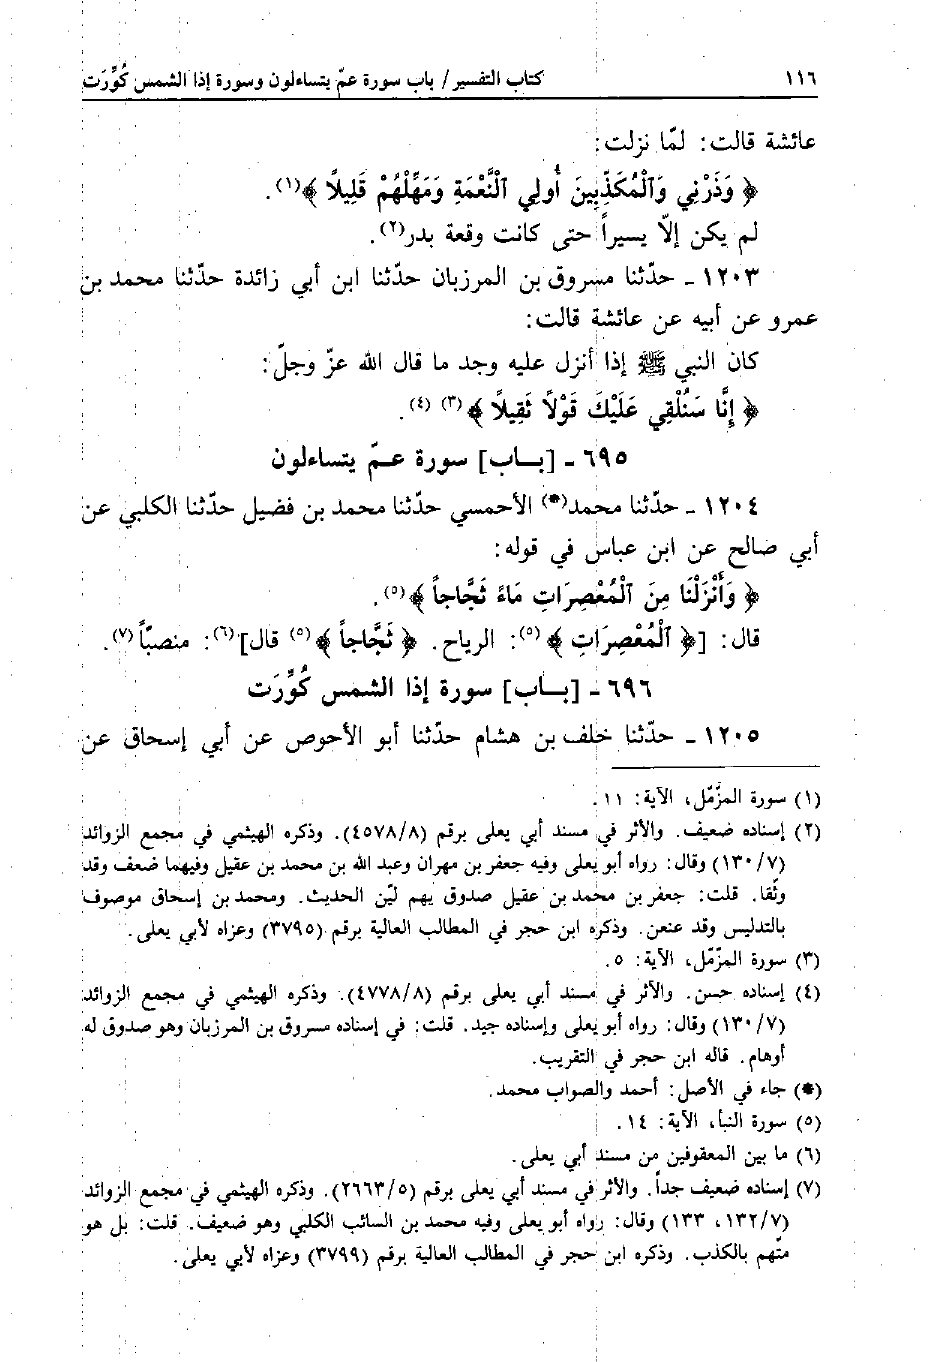 ١١٦ كتاب التفسير / باب سورة عمّ يتساءلون وسورة إذا الشمس كُوِّرَت
عائشة قالت: لمّا نزلت:
﴿ وَذَرْنِي وَٱلْمُكَذِّبِينَ أُولِي ٱلنَّعْمَةِ وَمَهِّلْهُمْ قَلِيلاً ﴾(١).
لم يكن إلاّ يسيراً حتى كانت وقعة بدر(٢).
١٢٠٣ ـ حدّثنا مسروق بن المرزبان حدّثنا ابن أبي زائدة حدّثنا محمد بن
عمرو عن أبيه عن عائشة قالت:
كان النبي ﷺ إذا أنزل عليه وجد ما قال الله عزّ وجلّ:
﴿ إِنَّا سَنُلْقِي عَلَيْكَ قَوْلاً ثَقِيلاً ﴾(٣) (٤).
٦٩٥ ـ [بـاب] سورة عـمّ يتساءلون
١٢٠٤ ـ حدّثنا محمد(*) الأحمسي حدّثنا محمد بن فضيل حدّثنا الكلبي عن
أبي صالح عن ابن عباس في قوله:
﴿ وَأَنْزَلْنَا مِنَ ٱلْمُعْصِرَاتِ مَاءً ثَجَّاجاً ﴾(٥).
قال: [﴿ ٱلْمُعْصِرَاتِ ﴾(٥): الرياح. ﴿ ثَجَّاجاً ﴾(٥) قال](٦): منصبّاً(٧).
٦٩٦ ـ [بـاب] سورة إذا الشمس كُوِّرَت
١٢٠٥ ـ حدّثنا خلف بن هشام حدّثنا أبو الأحوص عن أبي إسحاق عن
(١) سورة المزّمّل، الآية: ١١.
(٢) إسناده ضعيف. والأثر في مسند أبي يعلى برقم (٤٥٧٨/٨). وذكره الهيثمي في مجمع الزوائد
(١٣٠/٧) وقال: رواه أبو يعلى وفيه جعفر بن مهران وعبد الله بن محمد بن عقيل وفيهما ضعف وقد
وثّقا. قلت: جعفر بن محمد بن عقيل صدوق يهم ليّن الحديث. ومحمد بن إسحاق موصوف
بالتدليس وقد عنعن. وذكره ابن حجر في المطالب العالية برقم (٣٧٩٥) وعزاه لأبي يعلى.
(٣) سورة المزّمّل، الآية: ٥.
(٤) إسناده حسن. والأثر في مسند أبي يعلى برقم (٤٧٧٨/٨). وذكره الهيثمي في مجمع الزوائد
(١٣٠/٧) وقال: رواه أبو يعلى وإسناده جيد. قلت: في إسناده مسروق بن المرزبان وهو صدوق له
أوهام. قاله ابن حجر في التقريب.
(*) جاء في الأصل: أحمد والصواب محمد.
(٥) سورة النبأ، الآية: ١٤.
(٦) ما بين المعقوفين من مسند أبي يعلى.
(٧) إسناده ضعيف جداً. والأثر في مسند أبي يعلى برقم (٢٦٦٣/٥). وذكره الهيثمي في مجمع الزوائد
(١٣٢/٧، ١٣٣) وقال: رواه أبو يعلى وفيه محمد بن السائب الكلبي وهو ضعيف. قلت: بل هو
متّهم بالكذب. وذكره ابن حجر في المطالب العالية برقم (٣٧٩٩) وعزاه لأبي يعلى.